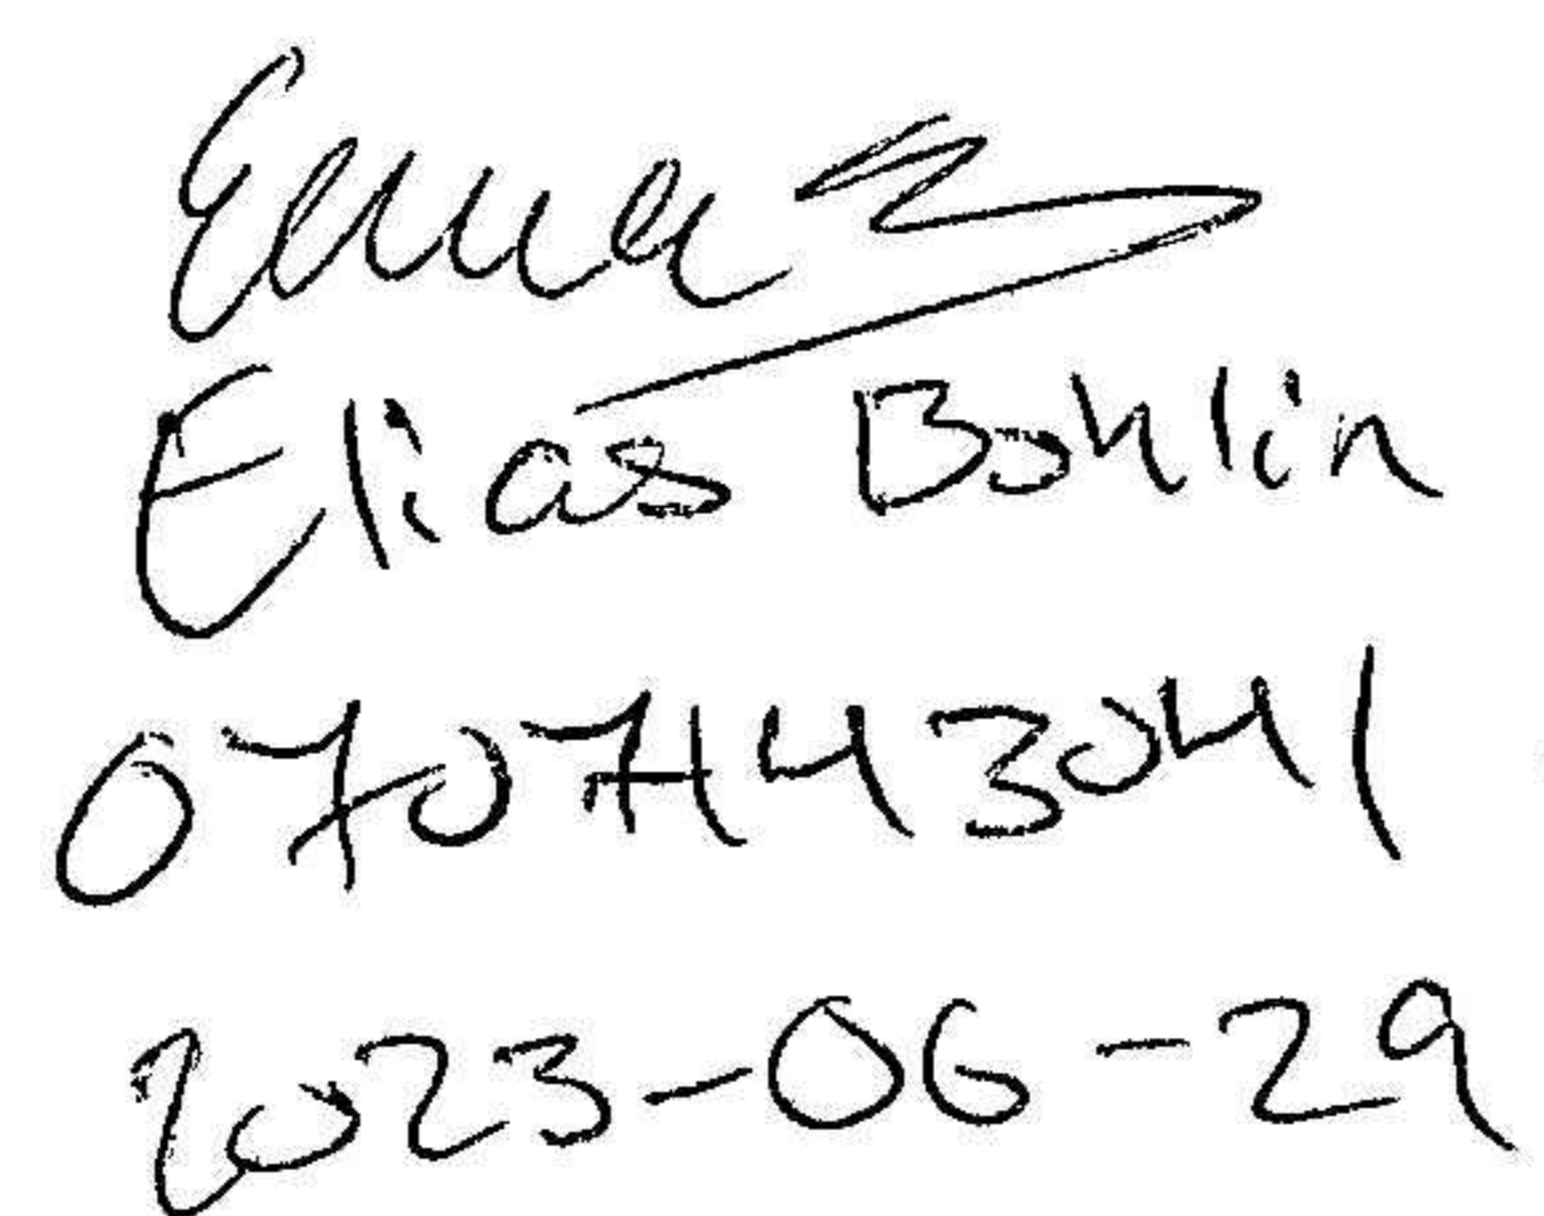 Elias Bohlin
0707143041
2023-06-29